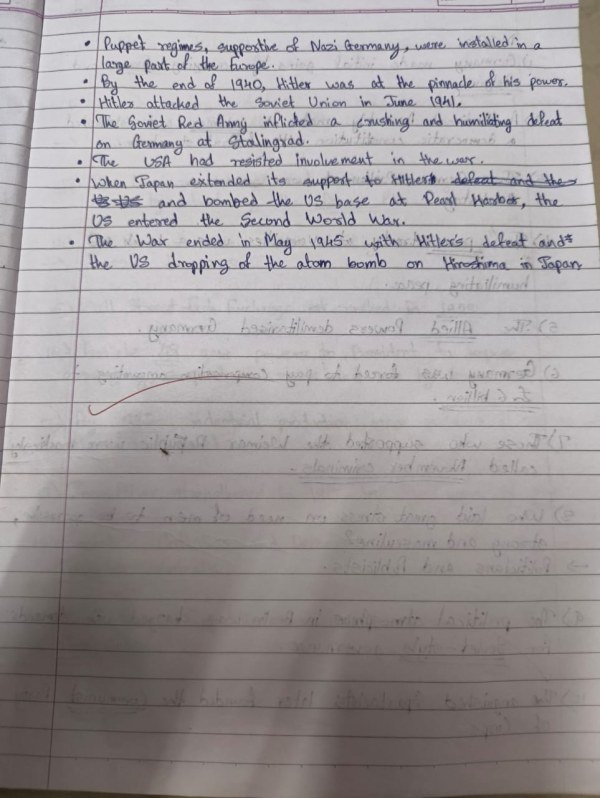 • Puppet regimes, supportive of Nazi Germany, were installed in a
large part of the Europe.
• By the end of 1940, Hitler was at the pinnacle of his power.
• Hitler attacked the Soviet Union in June 1941.
• The Soviet Red Army inflicted a crushing and humiliating defeat
on Germany at Stalingrad.
• The USA had resisted involvement in the war.
• When Japan extended its support to Hitler defeat and the
US and bombed the US base at Pearl Harbor, the
US entered the Second World War.
• The War ended in May 1945 with Hitler's defeat and
the US dropping of the atom bomb on Hiroshima in Japan.